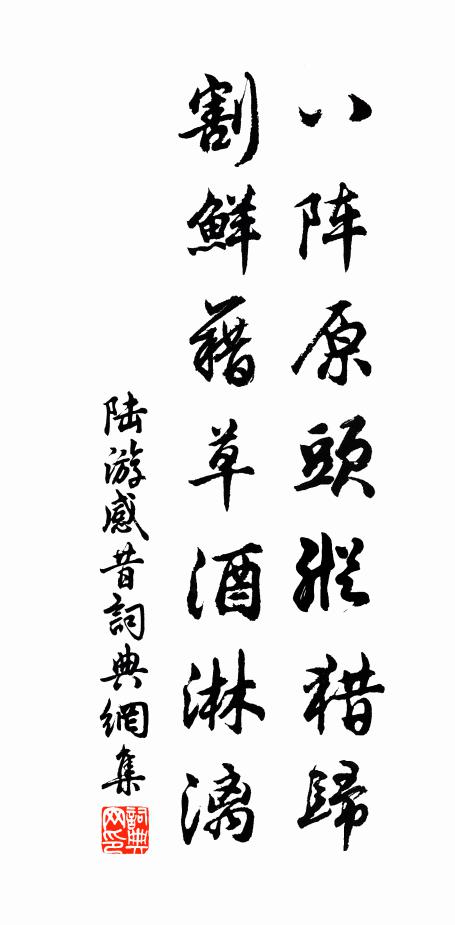 八阵原頭縱猎歸
割鮮藉草酒淋漓
陆游感昔詞典網集
詞典
网印